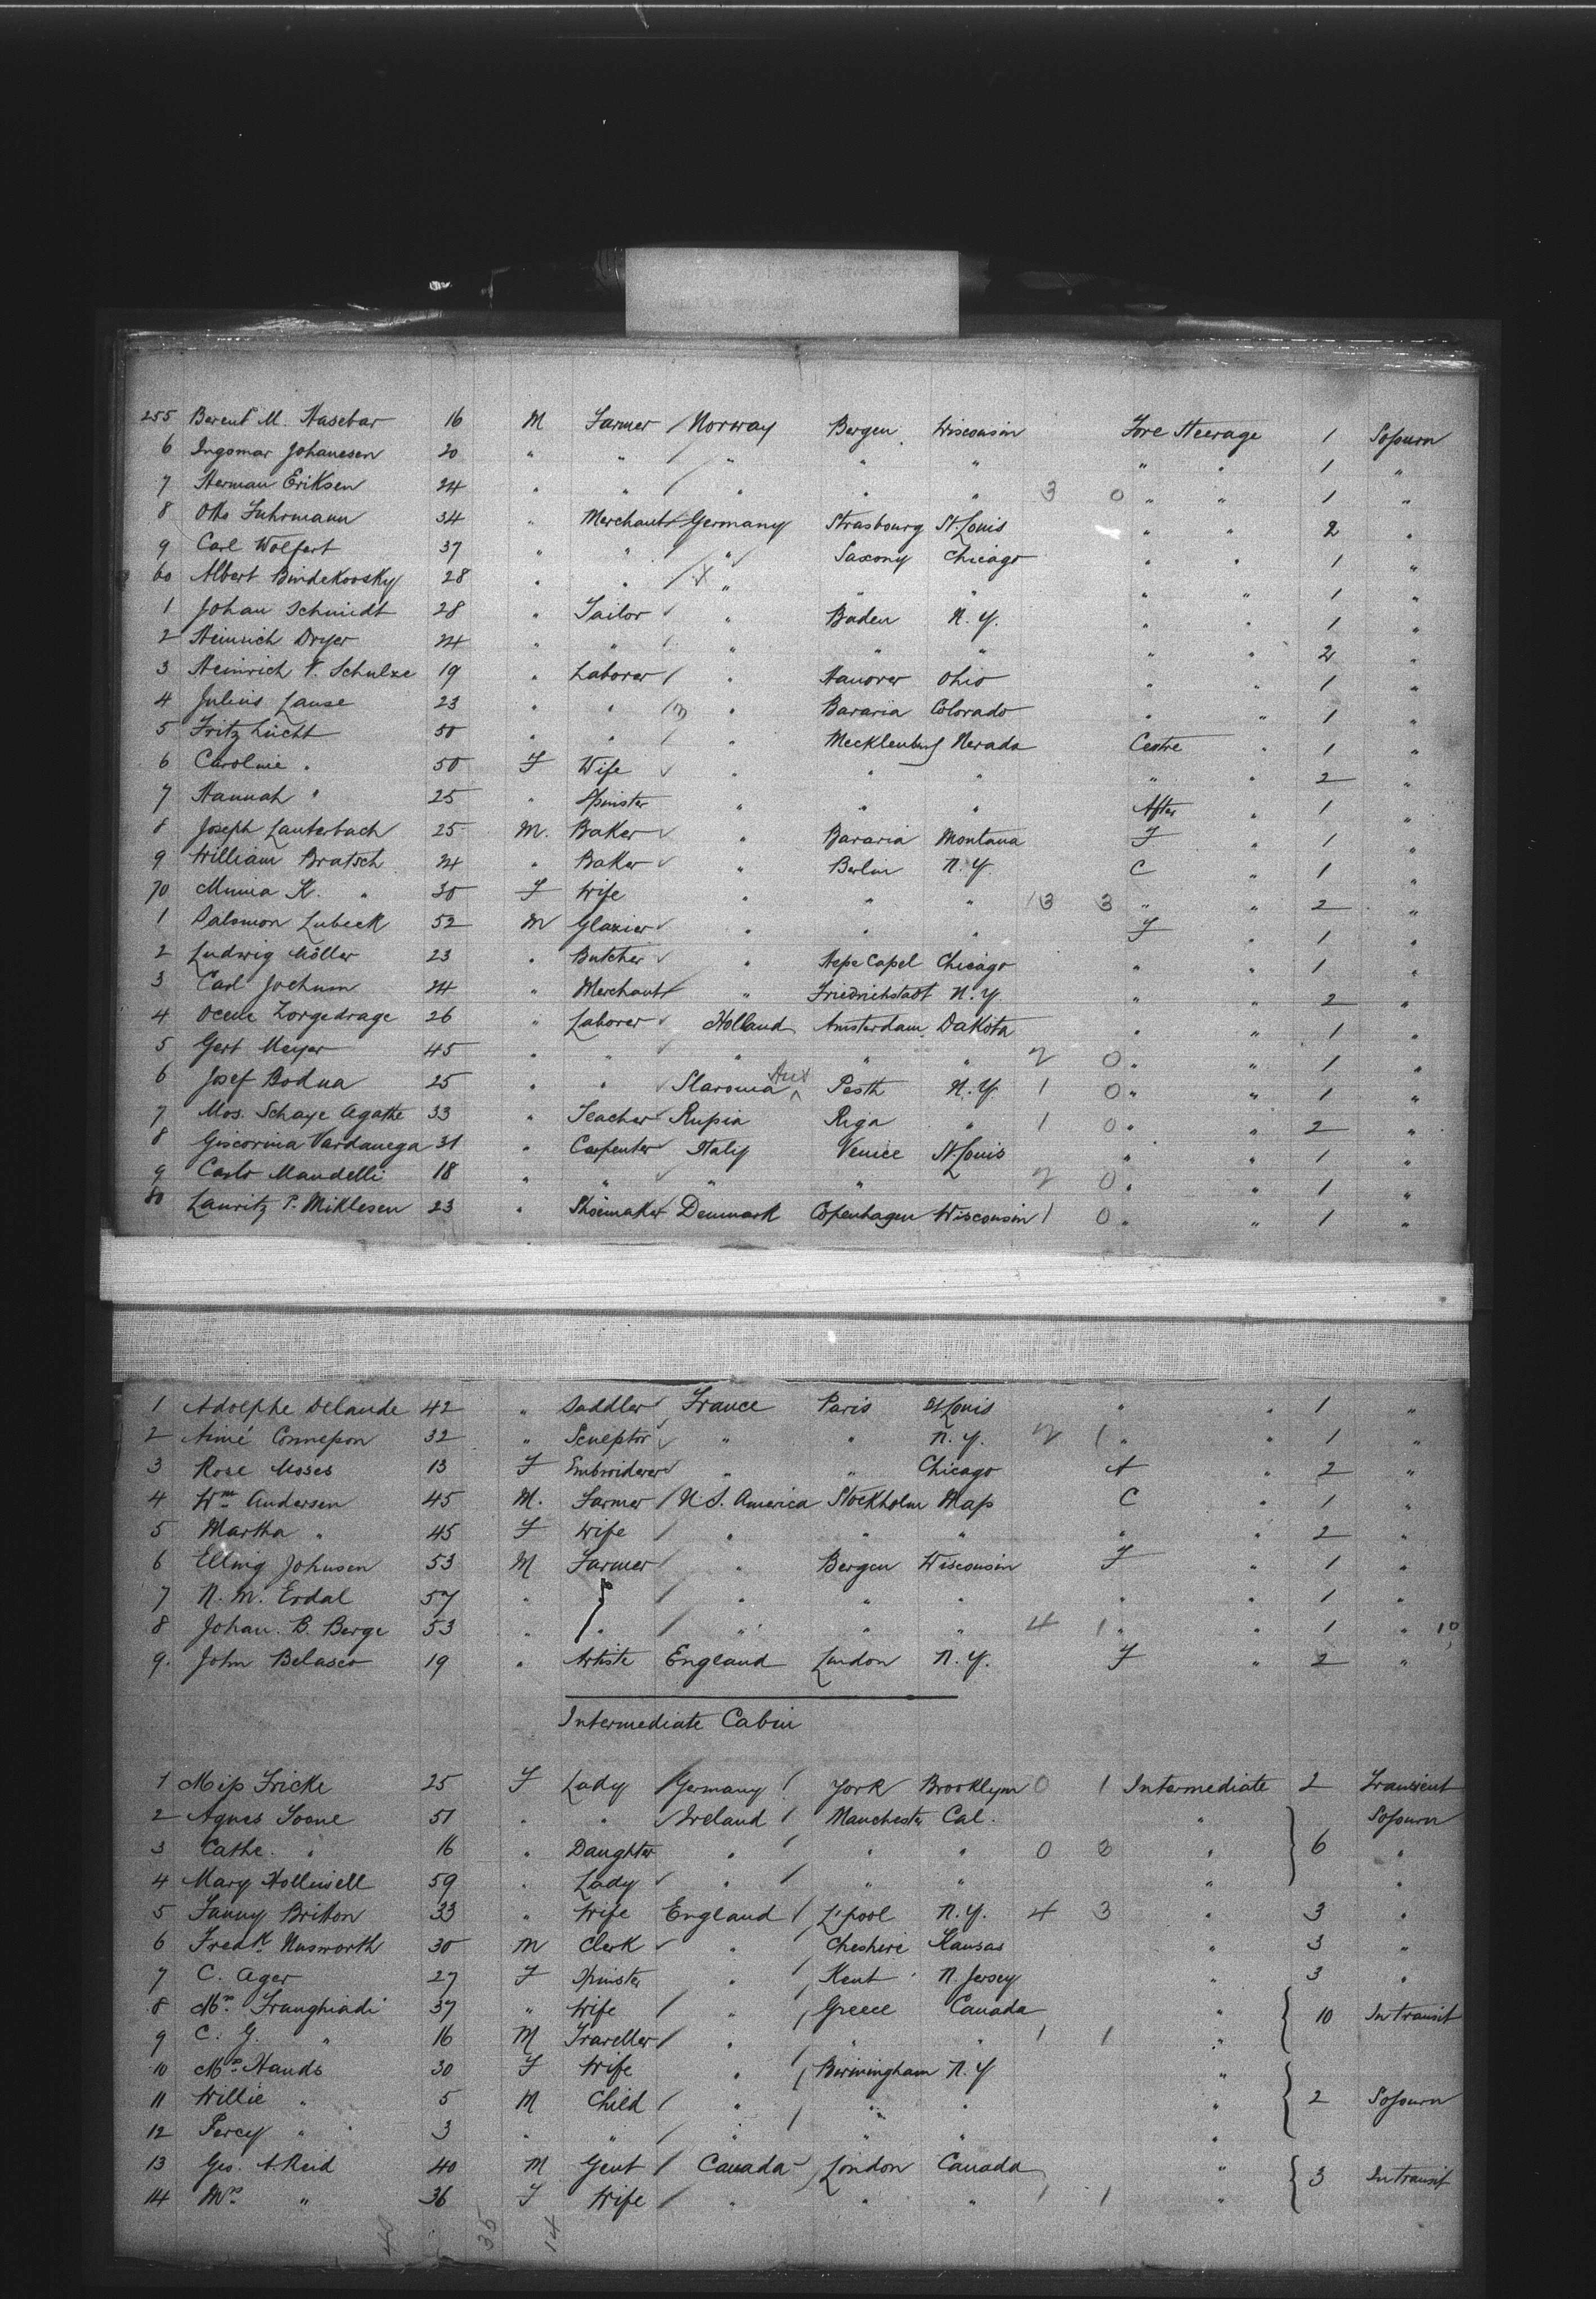 255 Berent M. Hasebar 16 M Farmer / Norway Bergen Wisconsin Fore Steerage 1 Sojourn
6 Ingomar Johanesen 20 " " / " " " " " 1 "
7 Herman Eriksen 24 " " / " " " 3 0 " " 1 "
8 Otto Fuhrmann 34 " Merchant Germany Strasbourg St. Louis " " 2 "
9 Carl Wolfert 37 " " " Saxony Chicago " " 1 "
60 Albert Bindekovsky 28 " " / " " " " " 1 "
1 Johan Schmidt 28 " Tailor " Baden N.Y. " " 1 "
2 Heinrich Dryer 24 " " " " " " " 2 "
3 Heinrich V. Schulze 19 " Laborer / " Hanover Ohio " " 1 "
4 Julius Lause 23 " " " Bavaria Colorado " " 1 "
5 Fritz Lücht 50 " " / " Mecklenburg Nevada Centre " 1 "
6 Caroline " 50 F Wife " " " " " 2 "
7 Hannah " 25 " Spinster " " " After " 1 "
8 Joseph Lauterbach 25 M. Baker " Bavaria Montana F " 1 "
9 William Bratsch 24 " Baker " Berlin N.Y. C " 1 "
70 Minna K. " 30 F Wife " " " 13 3 " " 2 "
1 Salomon Lubeck 52 M Glazier " " " F " 1 "
2 Ludwig Möller 23 " Butcher " Hepe Capel Chicago " " 1 "
3 Carl Jochum 24 " Merchant " Friedrichstadt N.Y. " " 2 "
4 Ocene Zorgedrage 26 " Laborer Holland Amsterdam Dakota " " 1 "
5 Gert Meyer 45 " " " " " 2 0 " " 1 "
6 Josef Bodna 25 " " Slavonia Aus Pesth N.Y. 1 0 " " 1 "
7 Mos. Schaye Agathe 33 " Teacher Russia Riga " 1 0 " " 2 "
8 Giscorina Vardanega 31 " Carpenter Italy Venice St. Louis " " 1 "
9 Carlo Mandelli 18 " " " " 2 0 " " 1 "
80 Lauritz P. Miklesen 23 " Shoemaker Denmark Copenhagen Wisconsin 1 0 " " 1 "
1 Adolphe Delande 42 " Saddler France Paris St Louis " " 1 "
2 Aimé Connesson 32 " Sculptor " " N.Y. 2 1 " " 1 "
3 Rose Moses 13 F Embroiderer " " Chicago A " 2 "
4 Wm Andersen 45 M. Farmer / N.S. America Stockholm Mass C " 1 "
5 Martha " 45 F Wife / " " " " " 2 "
6 Elling Johnsen 53 M Farmer / " Bergen Wisconsin F " 1 "
7 N.M. Erdal 57 " " / " " " " " 1 "
8 Johan. B. Berge 53 " " / " " " 4 1 " " 1 " 10
9. John Belasco 19 " Artiste England London N.Y. F " 2 "
Intermediate Cabin
1 Miss Fricke 25 F Lady / Germany / York Brooklyn 0 1 Intermediate 2 Transient
2 Agnes Toone 51 " " / Ireland / Manchester Cal. " Sojourn
3 Cathe. " 16 " Daughter " / " " 0 3 " 6 "
4 Mary Holliwell 59 " Lady " / " " " "
5 Fanny Britton 33 " Wife England / L'pool N.Y. 4 3 " 3 "
6 Fredk Unsworth 30 M Clerk " Cheshire Kansas " 3 "
7 C. Ager 27 F Spinster " / Kent N. Jersey " 3 "
8 Mrs Franghiadi 37 " Wife / " / Greece Canada " 10 In transit
9 C. G. " 16 M Traveller / " " " 1 1 "
10 Mrs Hands 30 F Wife " / Birmingham N.Y "
11 Willie " 5 M Child / " " " " 2 Sojourn
12 Percy " 3 " " / " / " " "
13 Geo. A. Reid 40 M Gent / Canada London Canada " 3 In transit
14 Mrs " 36 F Wife / " " " 1 1 "
40 35 14